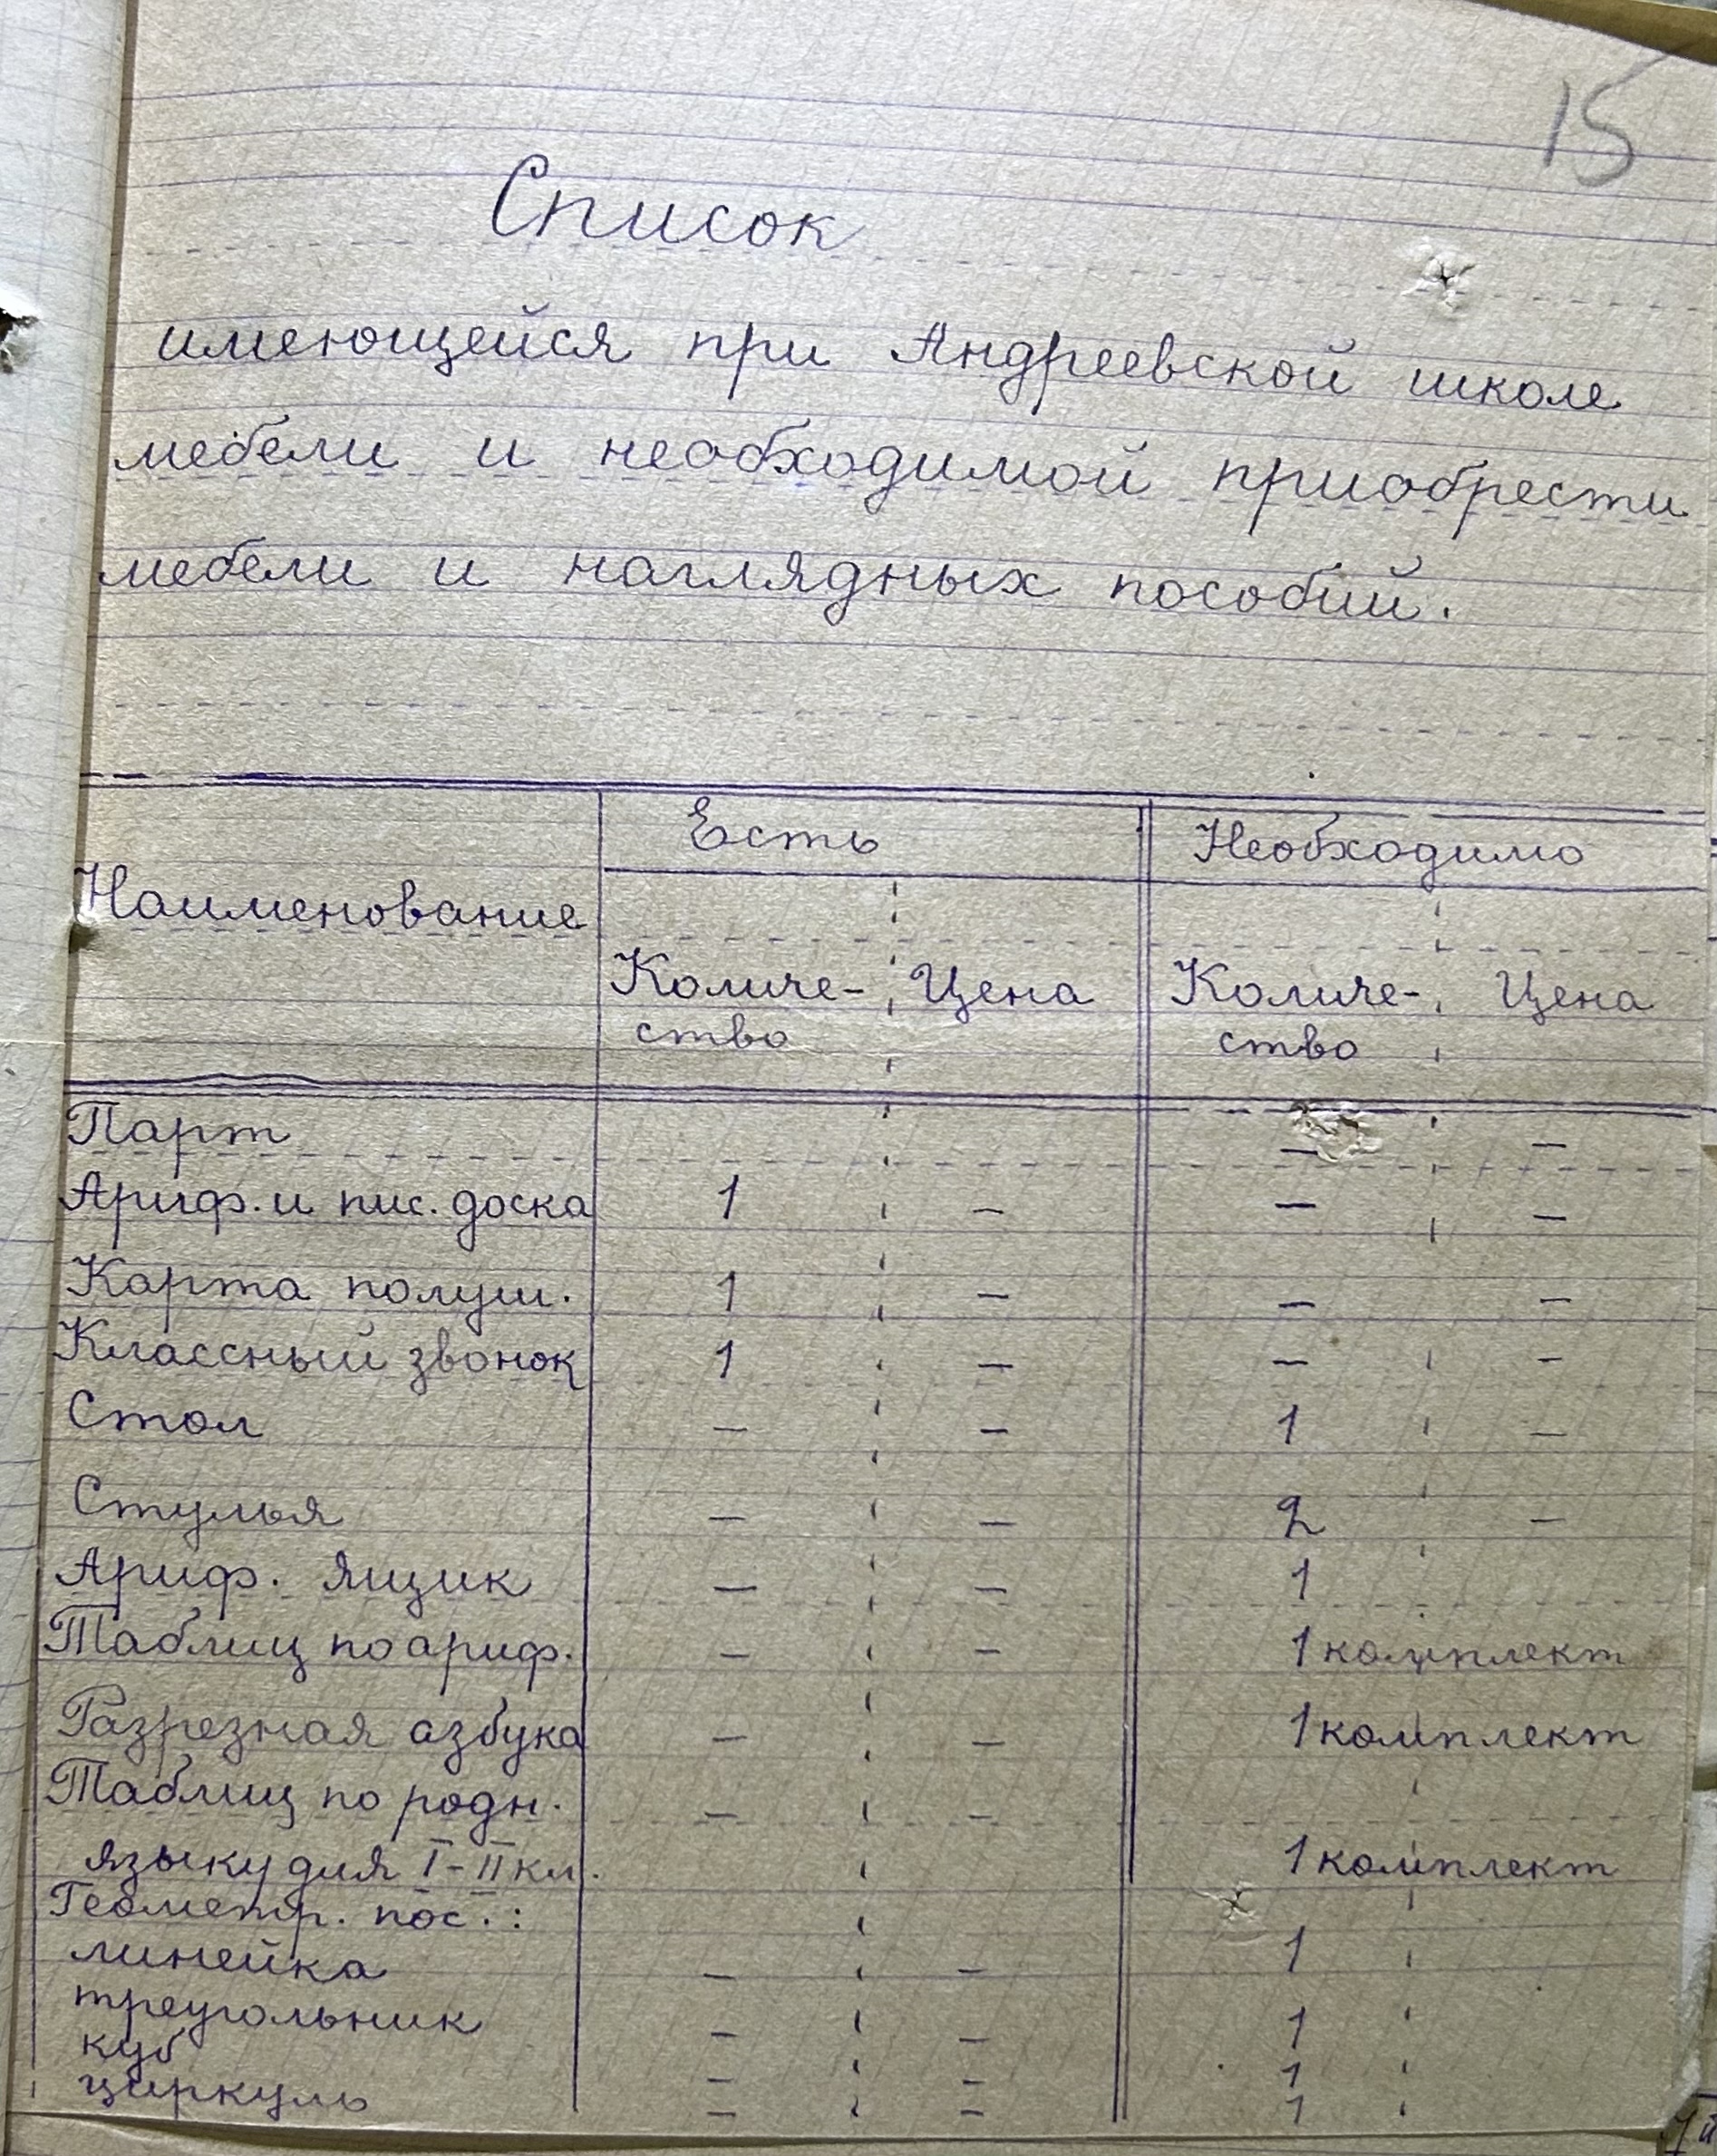 15
Список
имеющейся при Андреевской школе
мебели и необходимой приобрести
мебели и наглядных пособий.
Наименование Есть Необходимо
Количе- Цена Количе- Цена
ство ство
Парт – –
Ариф. и пис. доска 1 – – –
Карта полуш. 1 – – –
Классный звонок 1 – – –
Стол – – 1 –
Стулья – – 2 –
Ариф. ящик – – 1
Таблиц по ариф. – – 1 комплект
Разрезная азбука – – 1 комплект
Таблиц по родн. – –
языку для I-II кл. 1 комплект
Геометр. пос.:
линейка – – 1
треугольник – – 1
куб – – 1
циркуль – – 1